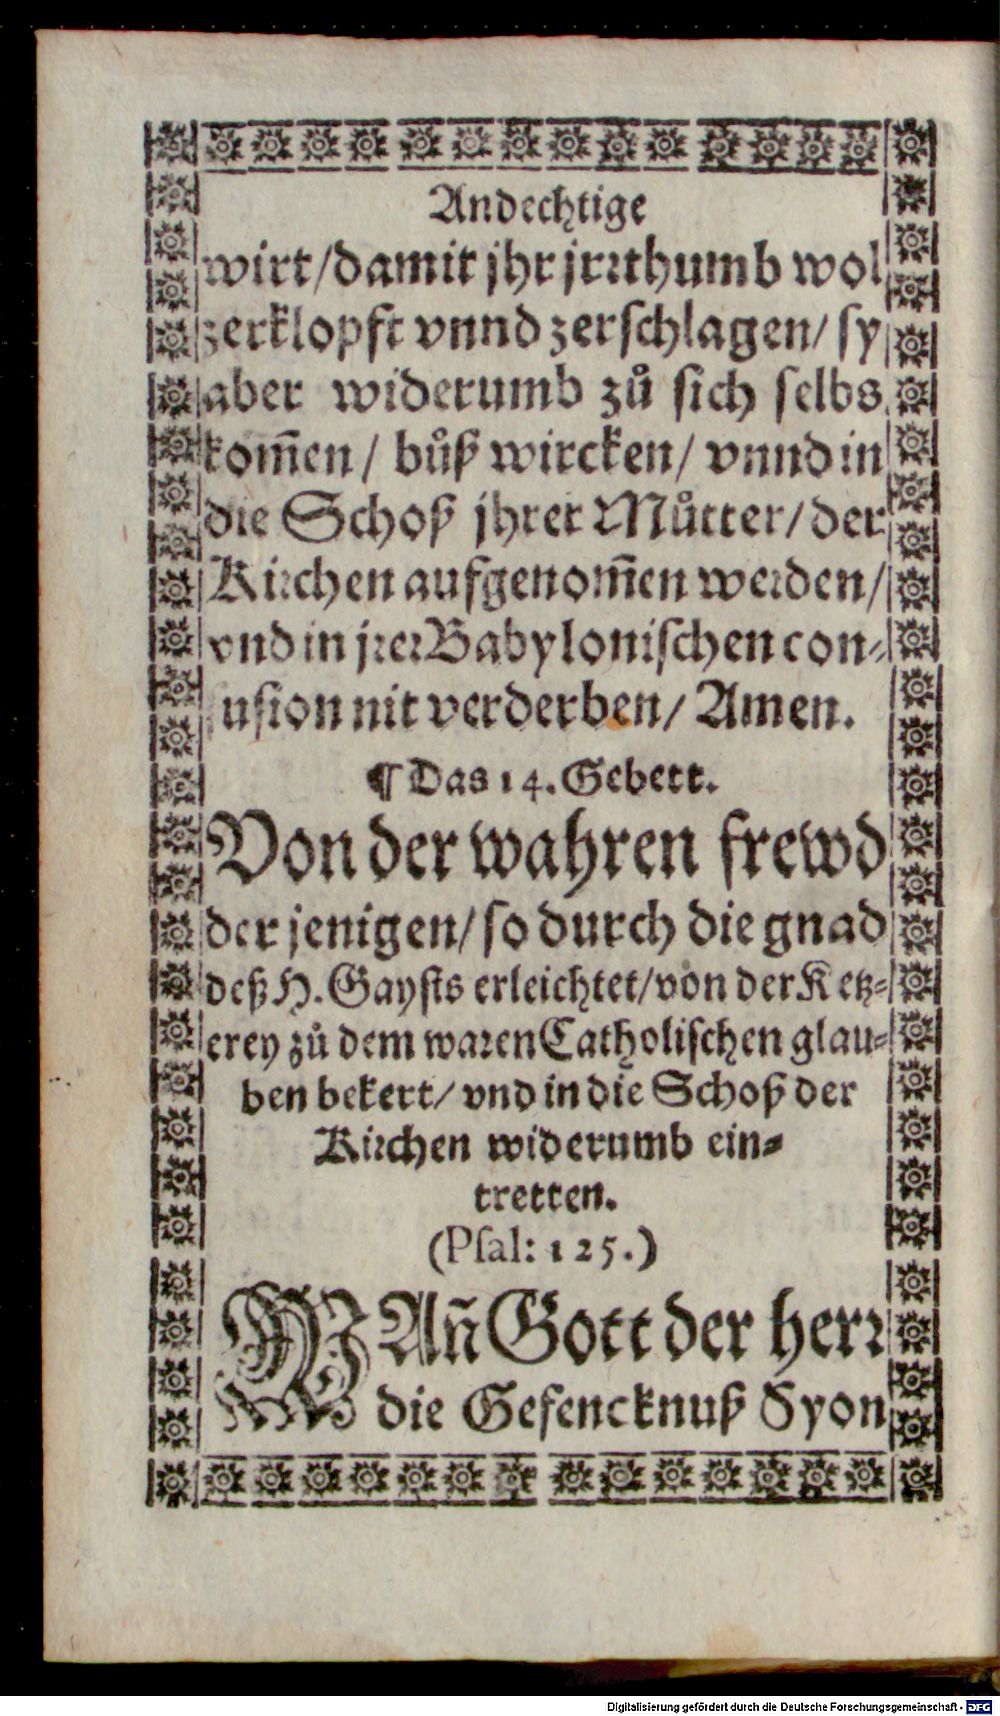 Andechtige
wirt/damit jhr jrꝛthumb wol
zerklopft vnnd zerſchlagen/ ſy
aber widerumb zů ſich ſelbs
kom̃en/ bůß wircken/ vnnd in
die Schoß jhrer Můtter/ der
Kirchen aufgenom̃en werden/
vnd in jrer Babyloniſchen con-
fuſion nit verderben/ Amen.
¶ Das 14. Gebett.
Von der wahren frewd
der jenigen/ ſo durch die gnad
deß H. Gayſts erleichtet/ von der Ketz-
erey zů dem waren Catholiſchen glau-
ben bekert/ vnd in die Schoß der
Kirchen widerumb ein-
tretten.
(Pſal: 125.)
WAñ Gott der herꝛ
die Gefencknuß Syon
Digitalisierung gefördert durch die Deutsche Forschungsgemeinschaft - DFG